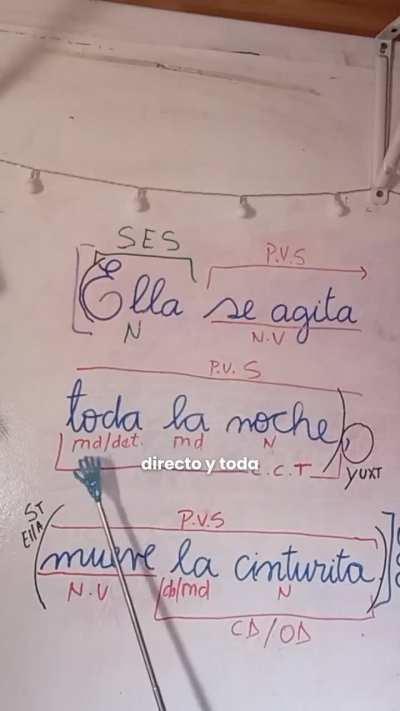 SES
P.V.S
Ella se agita
N
N.V
P.V.S
toda la noche,
md/det. md N
directo y toda
C.C.T
YUXT
ST
Ella
P.V.S
mueve la cinturita
N.V
N
CD/OD